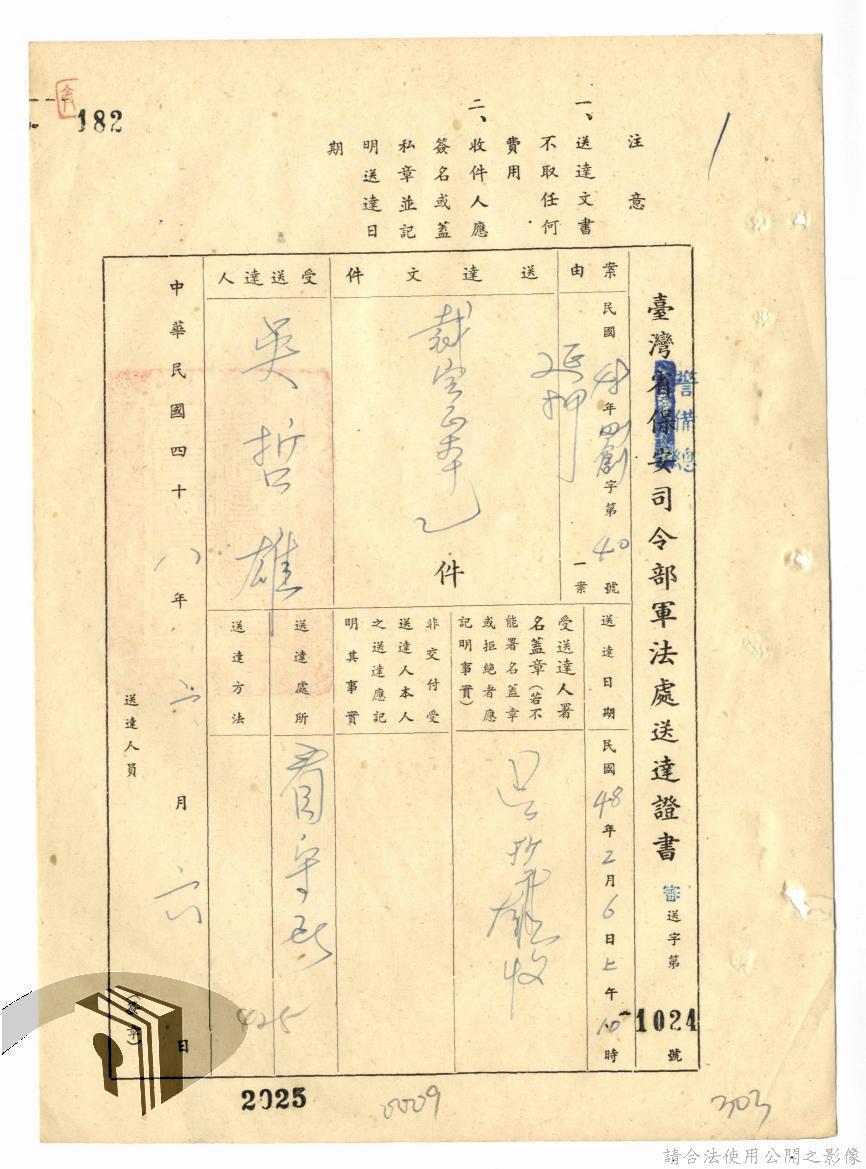 182
注意
一、送達文書
不取任何
費用
二、收件人應
簽名或蓋
私章並記
明送達日
期
臺灣省保安司令部軍法處送達證書
警備總
審送字第
1024
號
案由
民國48年字第40號
延押
一案
送達文件
裁定正本乙
件
受送達人
吳哲雄
送達日期
民國48年2月6日上午10時
受送達人署
名蓋章(若不
能署名蓋章
或拒絕者應
記明事實)
吳哲雄收
非交付受
送達人本人
之送達應記
明其事實
送達處所
看守所
送達方法
中華民國四十八年二月六日
送達人員
425
2025
0009
303
請合法使用公開之影像